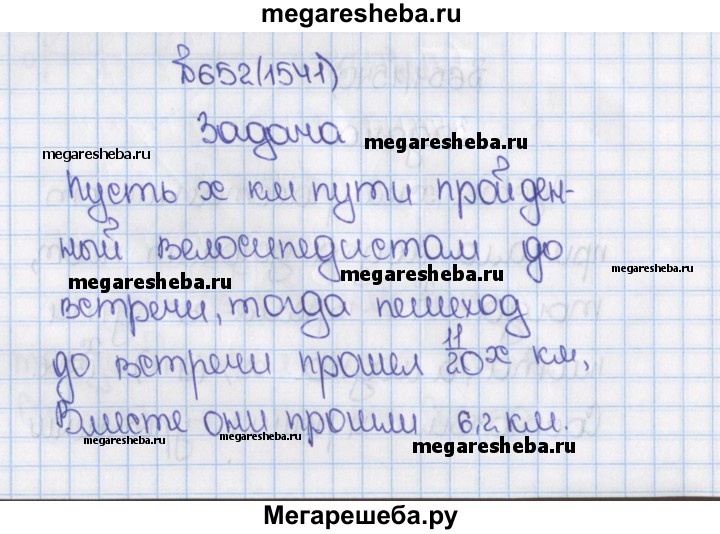 megaresheba.ru
№652(1541)
Задача
megaresheba.ru
megaresheba.ru
Пусть x км пути пройден-
ный велосипедистам до
megaresheba.ru
megaresheba.ru
встречи, тогда пешеход
до встречи прошел 11/20 x км,
Вместе они прошли 6,2 км.
megaresheba.ru
megaresheba.ru
megaresheba.ru
Мегарешеба.ру